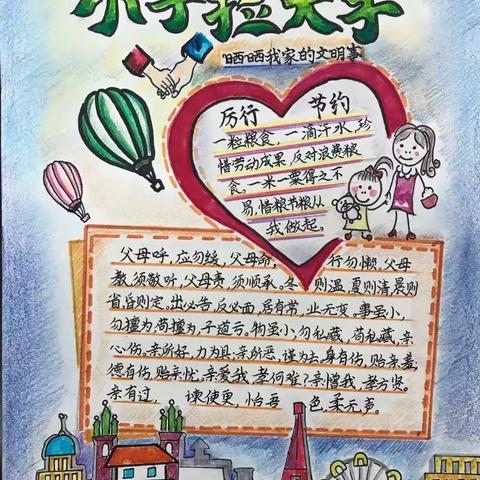 小手拉大手
晒晒我家的文明事
厉行 节约
一粒粮食,一滴汗水,珍
惜劳动成果,反对浪费粮
食,一米一粟得之不
易,惜粮节粮从
我做起。
父母呼,应勿缓,父母命, 行勿懒,父母
教,须敬听,父母责,须顺承。冬 则温,夏则清,晨则
省,昏则定。出必告,反必面,居有常,业无变,事虽小,
勿擅为,苟擅为,子道亏。物虽小,勿私藏,苟私藏,亲
心伤。亲所好,力为具;亲所恶,谨为去。身有伤,贻亲羞;
德有伤,贻亲忧,亲爱我,孝何难?亲憎我,孝方贤。
亲有过, 谏使更,怡吾 色,柔无声。